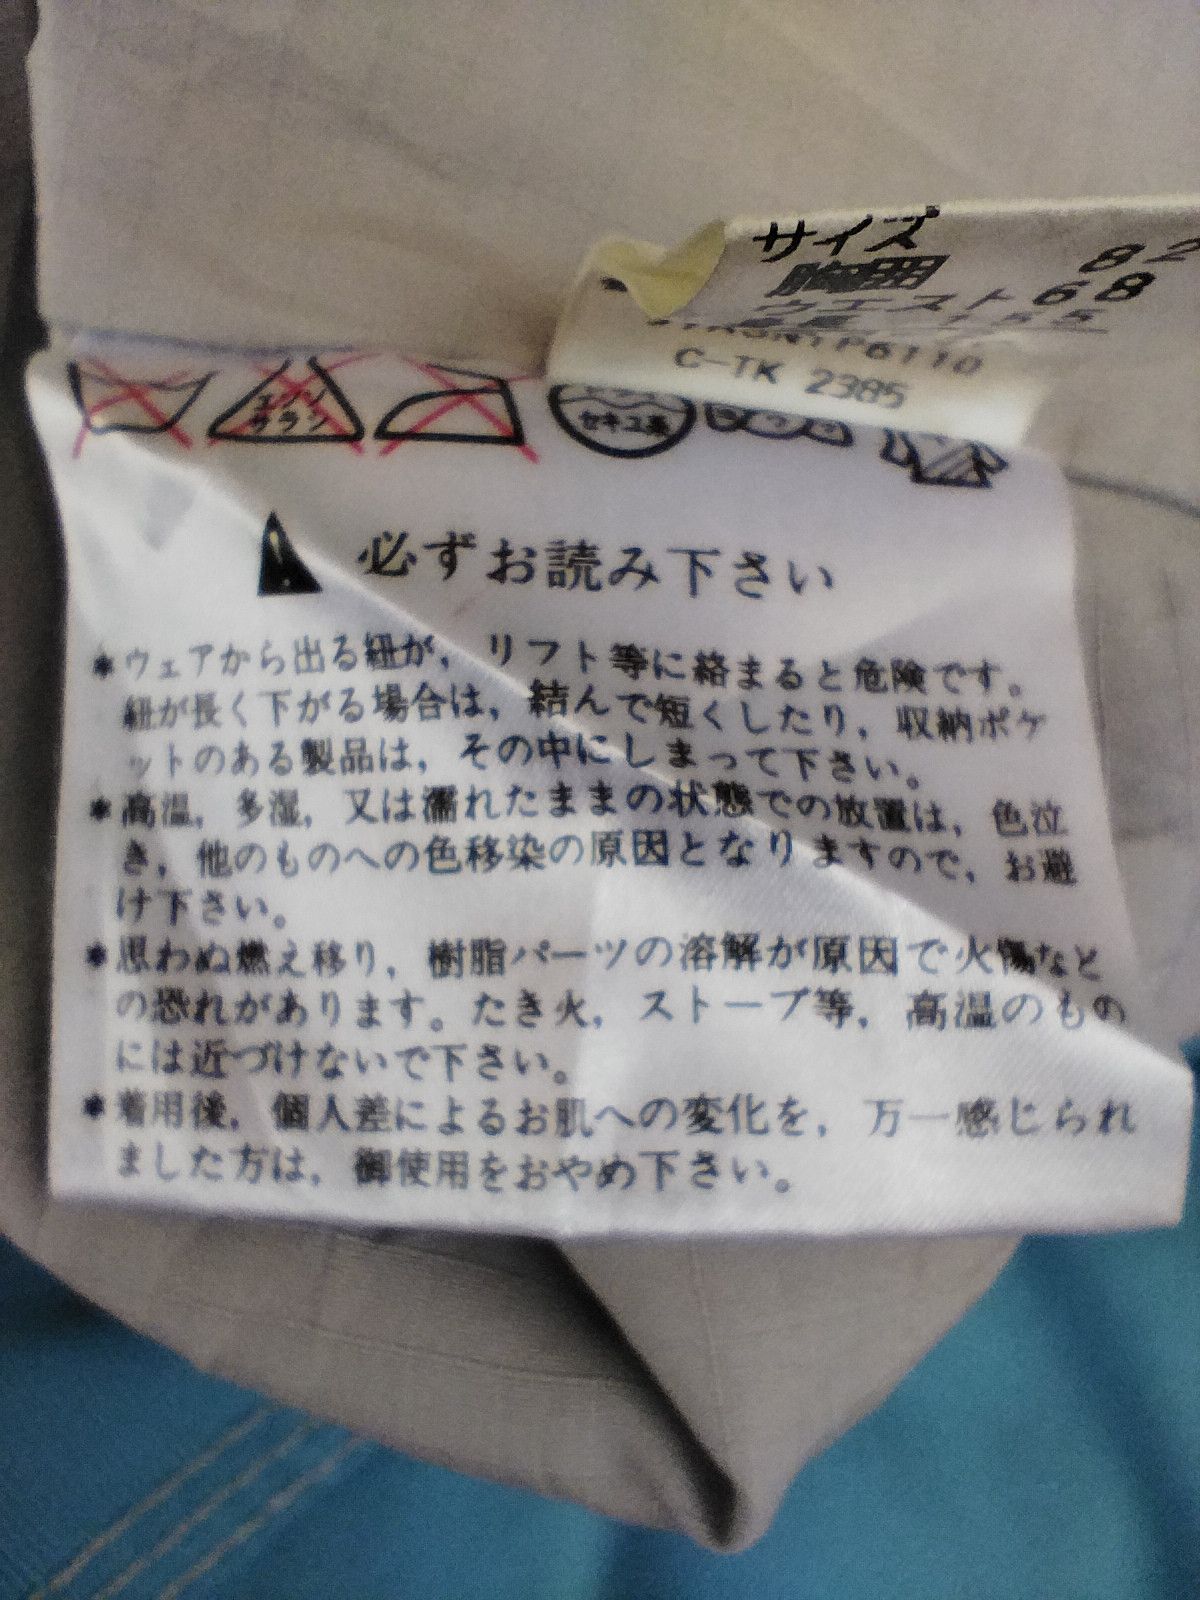 サイズ
胸囲 82
ウエスト 68
C-TK 2385
エンソ
サラシ
セキユ系
必ずお読み下さい
*ウェアから出る紐が，リフト等に絡まると危険です。
紐が長く下がる場合は，結んで短くしたり，収納ポケ
ットのある製品は，その中にしまって下さい。
*高温，多湿，又は濡れたままの状態での放置は，色泣
き，他のものへの色移染の原因となりますので，お避
け下さい。
*思わぬ燃え移り，樹脂パーツの溶解が原因で火傷など
の恐れがあります。たき火，ストーブ等，高温のもの
には近づけないで下さい。
*着用後，個人差によるお肌への変化を，万一感じられ
ました方は，御使用をおやめ下さい。